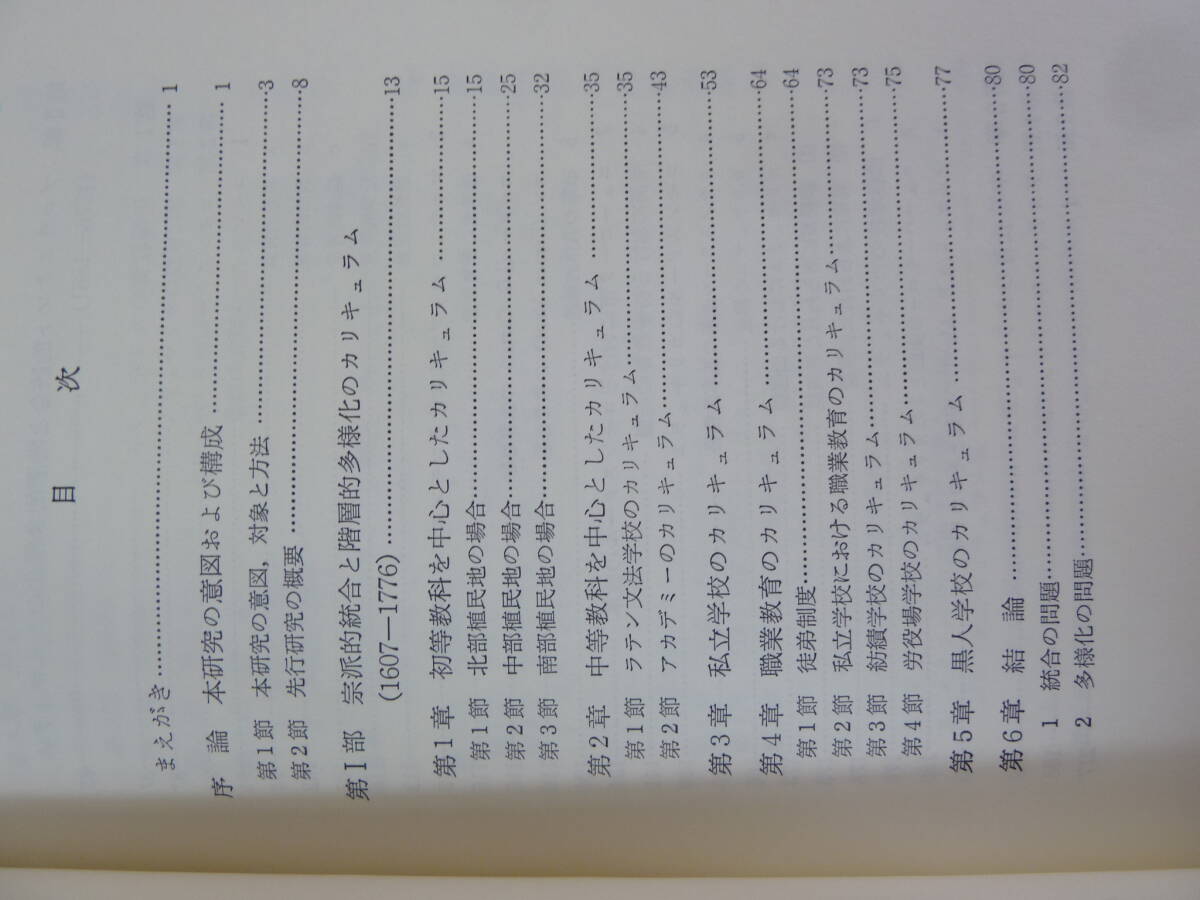 目　　次
まえがき……………………………………………………1
序　論　本研究の意図および構成……………………1
第1節　本研究の意図，対象と方法……………………3
第2節　先行研究の概要……………………………………8
第Ⅰ部　宗派的統合と階層的多様化のカリキュラム
(1607—1776)……………………………………13
第1章　初等教科を中心としたカリキュラム……………15
第1節　北部植民地の場合…………………………………15
第2節　中部植民地の場合…………………………………25
第3節　南部植民地の場合…………………………………32
第2章　中等教科を中心としたカリキュラム……………35
第1節　ラテン文法学校のカリキュラム…………………35
第2節　アカデミーのカリキュラム………………………43
第3章　私立学校のカリキュラム…………………………53
第4章　職業教育のカリキュラム…………………………64
第1節　徒弟制度……………………………………………64
第2節　私立学校における職業教育のカリキュラム……73
第3節　紡績学校のカリキュラム…………………………73
第4節　労役場学校のカリキュラム………………………75
第5章　黒人学校のカリキュラム…………………………77
第6章　結　論………………………………………………80
1　統合の問題………………………………………………80
2　多様化の問題……………………………………………82